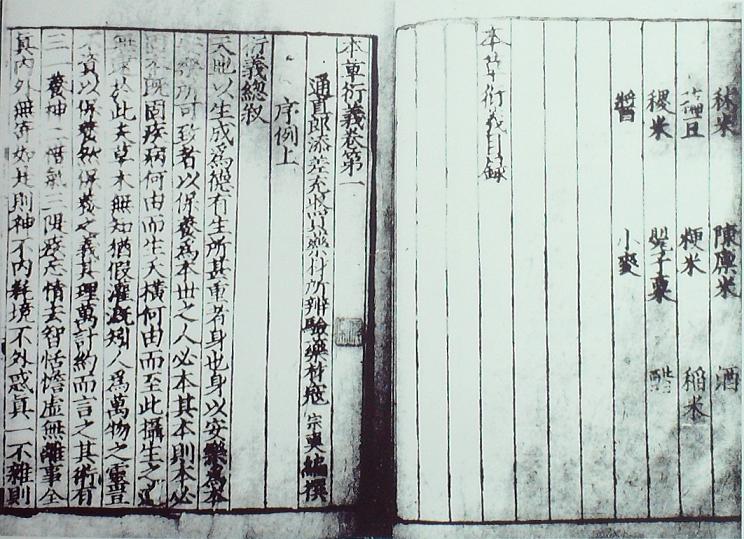 秫米 陳廩米 酒
藊豆 粳米 稻米
稷米 罌子粟 醋
醬 小麥
本草衍義目錄
本草衍義卷第一
通直郎添差充收買藥材所辨驗藥材寇宗奭編撰
序例上
衍義總敘
天地以生成爲德有生所甚重者身也身以安樂爲本
安樂所可致者以保養爲本世之人必本其本則本必
固本既固疾病何由而生夭橫何由而至此攝生之道
無逮於此夫草木無知猶假灌溉矧人爲萬物之靈豈
不資以保養然保養之義其理萬計約而言之其術有
三一養神二惜氣三隄疾忘情去智恬憺虛無離事全
真內外無寄如是則神不內耗境不外惑真一不雜則